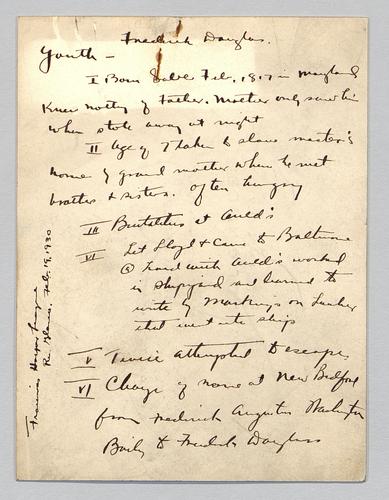 Fredrick Douglas.
Youth —
I Born Slave Feb. 1817 in Maryland
Knew nothing of Father. Mother only saw him
when stole away at night
II Age of 7 taken to slave master's
home by grand mother when he met
brother & sisters. often hungry
III Brutalities at Auld's
VI Left Lloyd & Came to Baltimore
@ lived with Auld's worked
in shipyard and learned to
write by markings on lumber
that went into ships
V Twice attempted to escape,
VI Change of name at New Bedford
from Fredrick Augustus Washington
Baily to Fredrick Douglass
Francis Harper League
Feb. 19, 1930